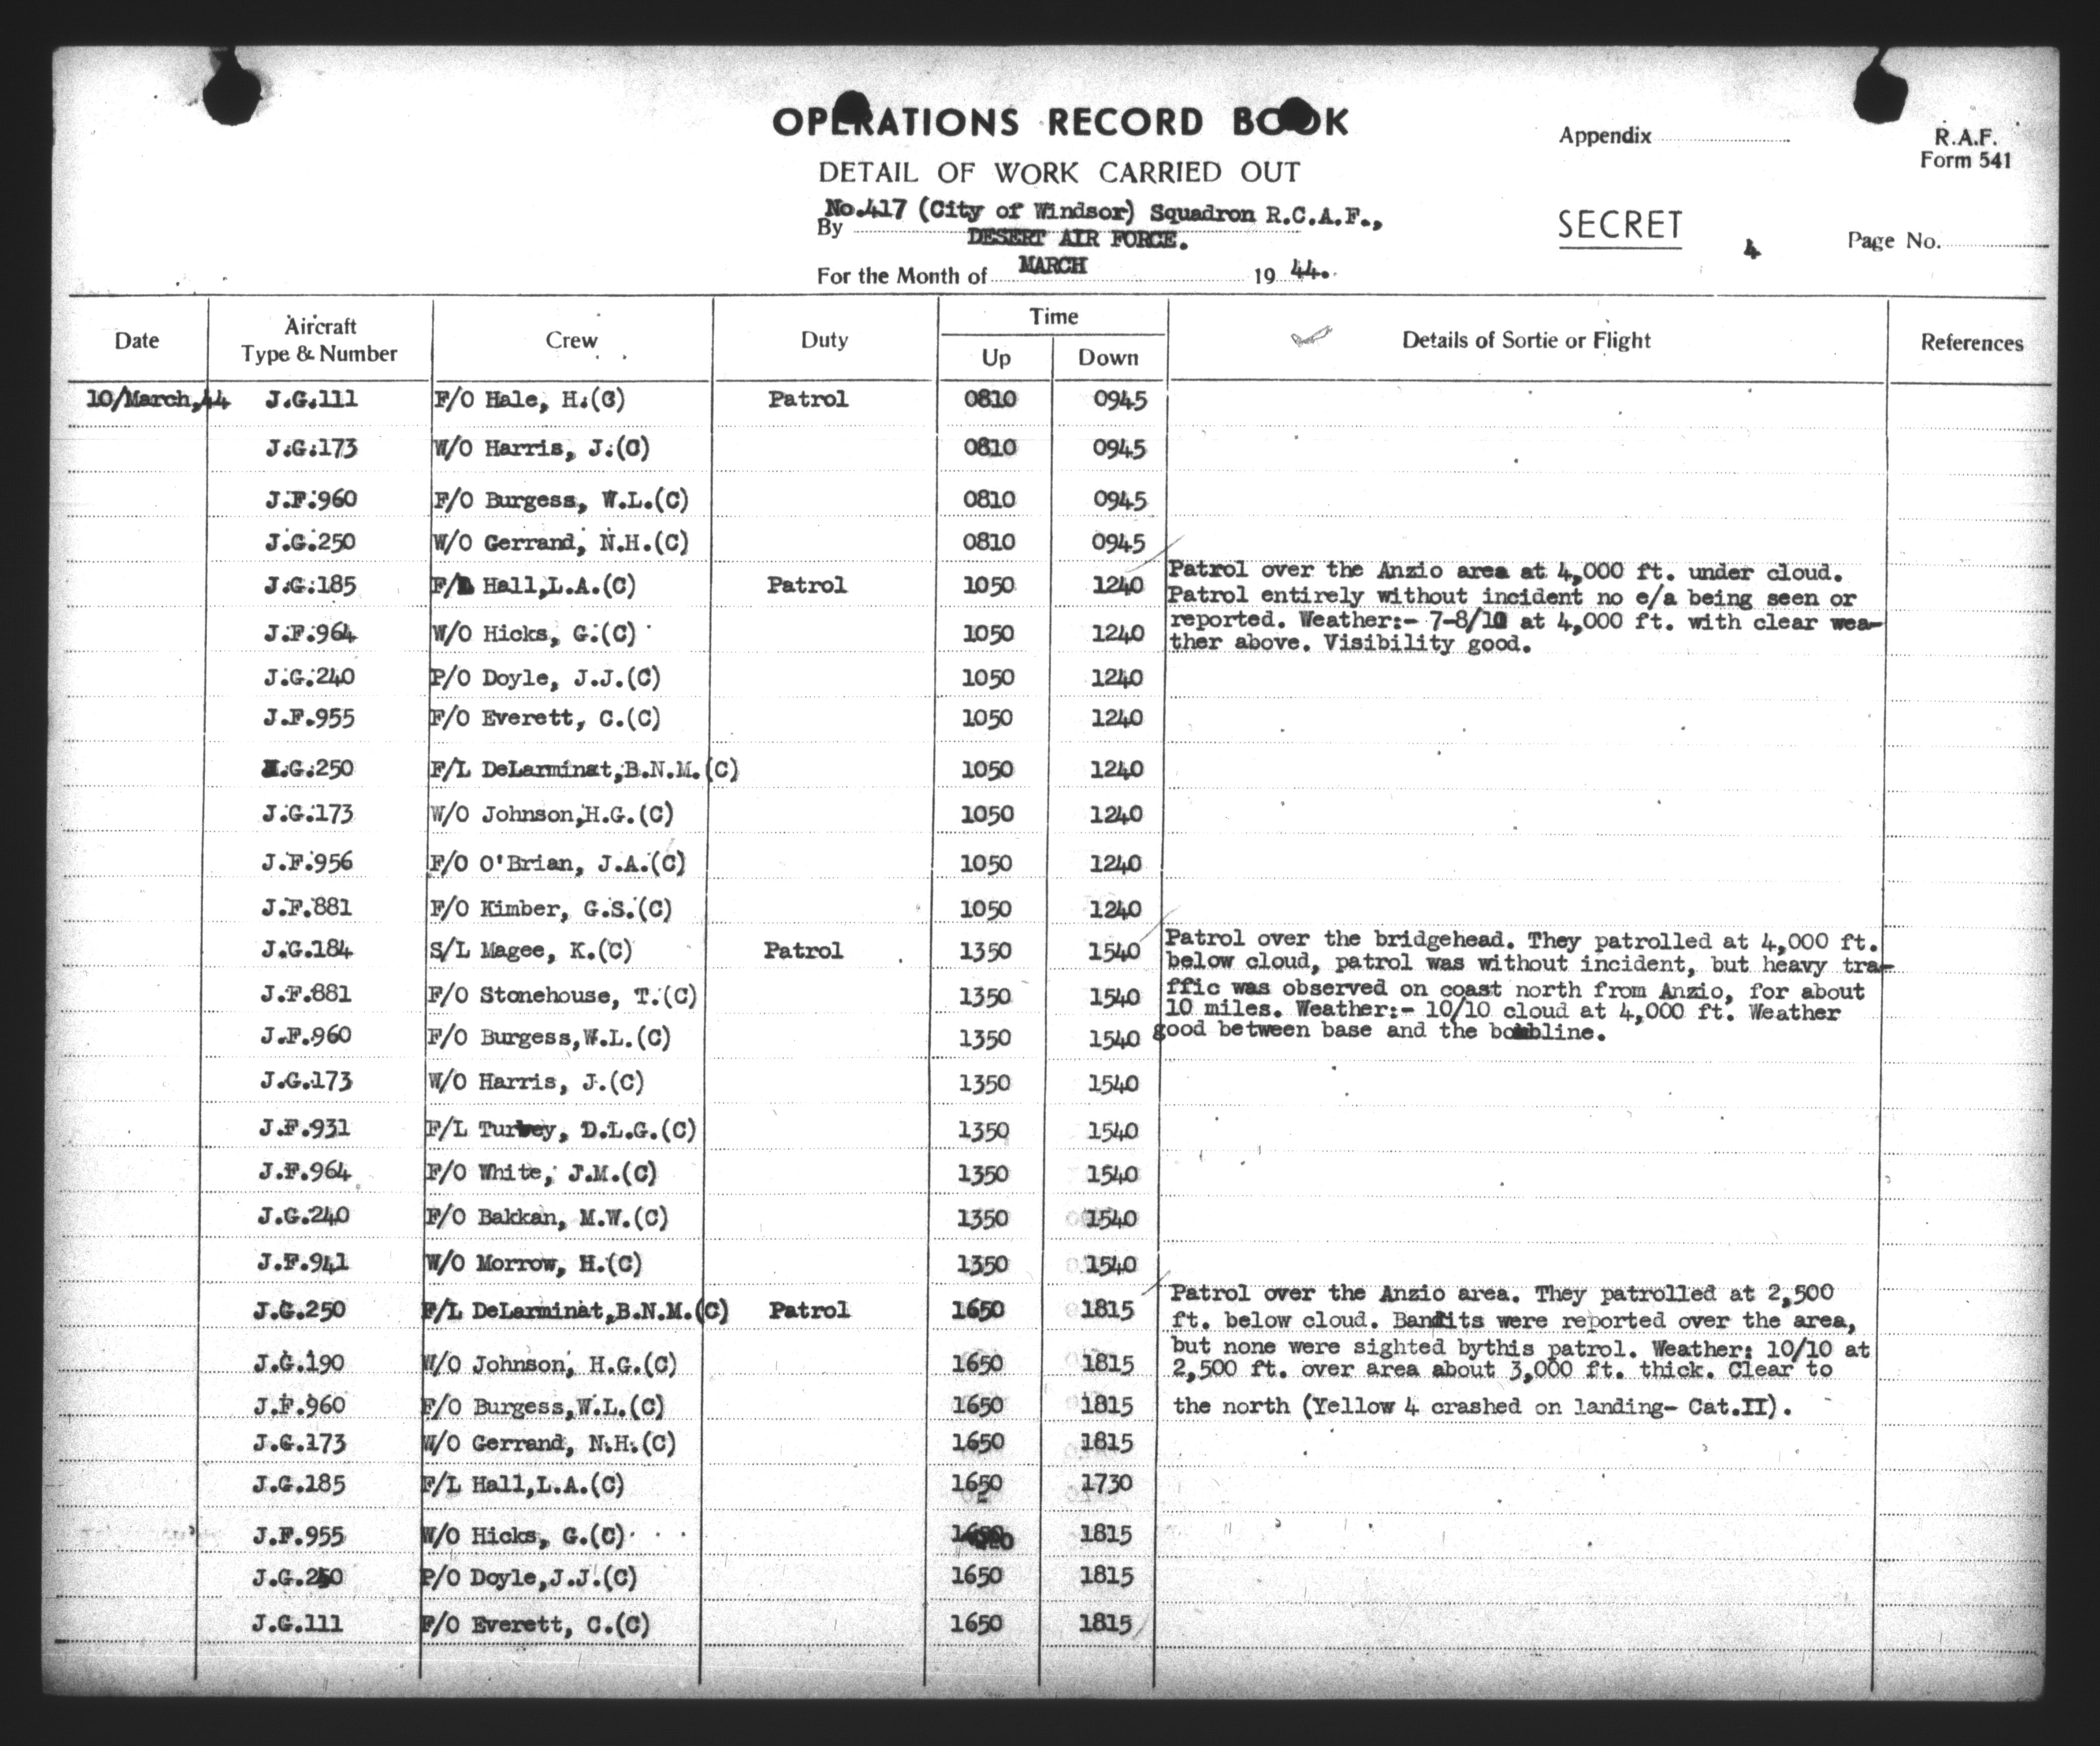 OPERATIONS RECORD BOOK
Appendix
R.A.F.
Form 541
DETAIL OF WORK CARRIED OUT
By No.417 (City of Windsor) Squadron R.C.A.F.,
DESERT AIR FORCE.
SECRET
4
Page No.
For the Month of MARCH 19 44.
Date Aircraft Type & Number Crew Duty Time Up Down Details of Sortie or Flight References
10/March,44 J.G.111 F/O Hale, H.(C) Patrol 0810 0945
J.G.173 W/O Harris, J.(C) 0810 0945
J.F.960 F/O Burgess, W.L.(C) 0810 0945
J.G.250 W/O Gerrand, N.H.(C) 0810 0945
J.G.185 F/L Hall,L.A.(C) Patrol 1050 1240 Patrol over the Anzio area at 4,000 ft. under cloud.
Patrol entirely without incident no e/a being seen or
J.F.964 W/O Hicks, G.(C) 1050 1240 reported. Weather:- 7-8/10 at 4,000 ft. with clear wea-
ther above. Visibility good.
J.G.240 P/O Doyle, J.J.(C) 1050 1240
J.F.955 F/O Everett, C.(C) 1050 1240
J.G.250 F/L DeLarminat,B.N.M.(C) 1050 1240
J.G.173 W/O Johnson,H.G.(C) 1050 1240
J.F.956 F/O O'Brian, J.A.(C) 1050 1240
J.F.881 F/O Kimber, G.S.(C) 1050 1240
J.G.184 S/L Magee, K.(C) Patrol 1350 1540 Patrol over the bridgehead. They patrolled at 4,000 ft.
below cloud, patrol was without incident, but heavy tra-
J.F.881 F/O Stonehouse, T.(C) 1350 1540 ffic was observed on coast north from Anzio, for about
10 miles. Weather:- 10/10 cloud at 4,000 ft. Weather
J.F.960 F/O Burgess,W.L.(C) 1350 1540 good between base and the bombline.
J.G.173 W/O Harris, J.(C) 1350 1540
J.F.931 F/L Turvey, D.L.G.(C) 1350 1540
J.F.964 F/O White, J.M.(C) 1350 1540
J.G.240 F/O Bakkan, M.W.(C) 1350 1540
J.F.941 W/O Morrow, H.(C) 1350 1540
J.G.250 F/L DeLarminat,B.N.M.(C) Patrol 1650 1815 Patrol over the Anzio area. They patrolled at 2,500
ft. below cloud. Bandits were reported over the area,
but none were sighted bythis patrol. Weather: 10/10 at
J.G.190 W/O Johnson, H.G.(C) 1650 1815 2,500 ft. over area about 3,000 ft. thick. Clear to
J.F.960 F/O Burgess,W.L.(C) 1650 1815 the north (Yellow 4 crashed on landing- Cat.II).
J.G.173 W/O Gerrand, N.H.(C) 1650 1815
J.G.185 F/L Hall,L.A.(C) 1650 1730
J.F.955 W/O Hicks, G.(C) 1815
P/O Doyle,J.J.(C) 1650 1815
J.G.111 F/O Everett, C.(C) 1650 1815